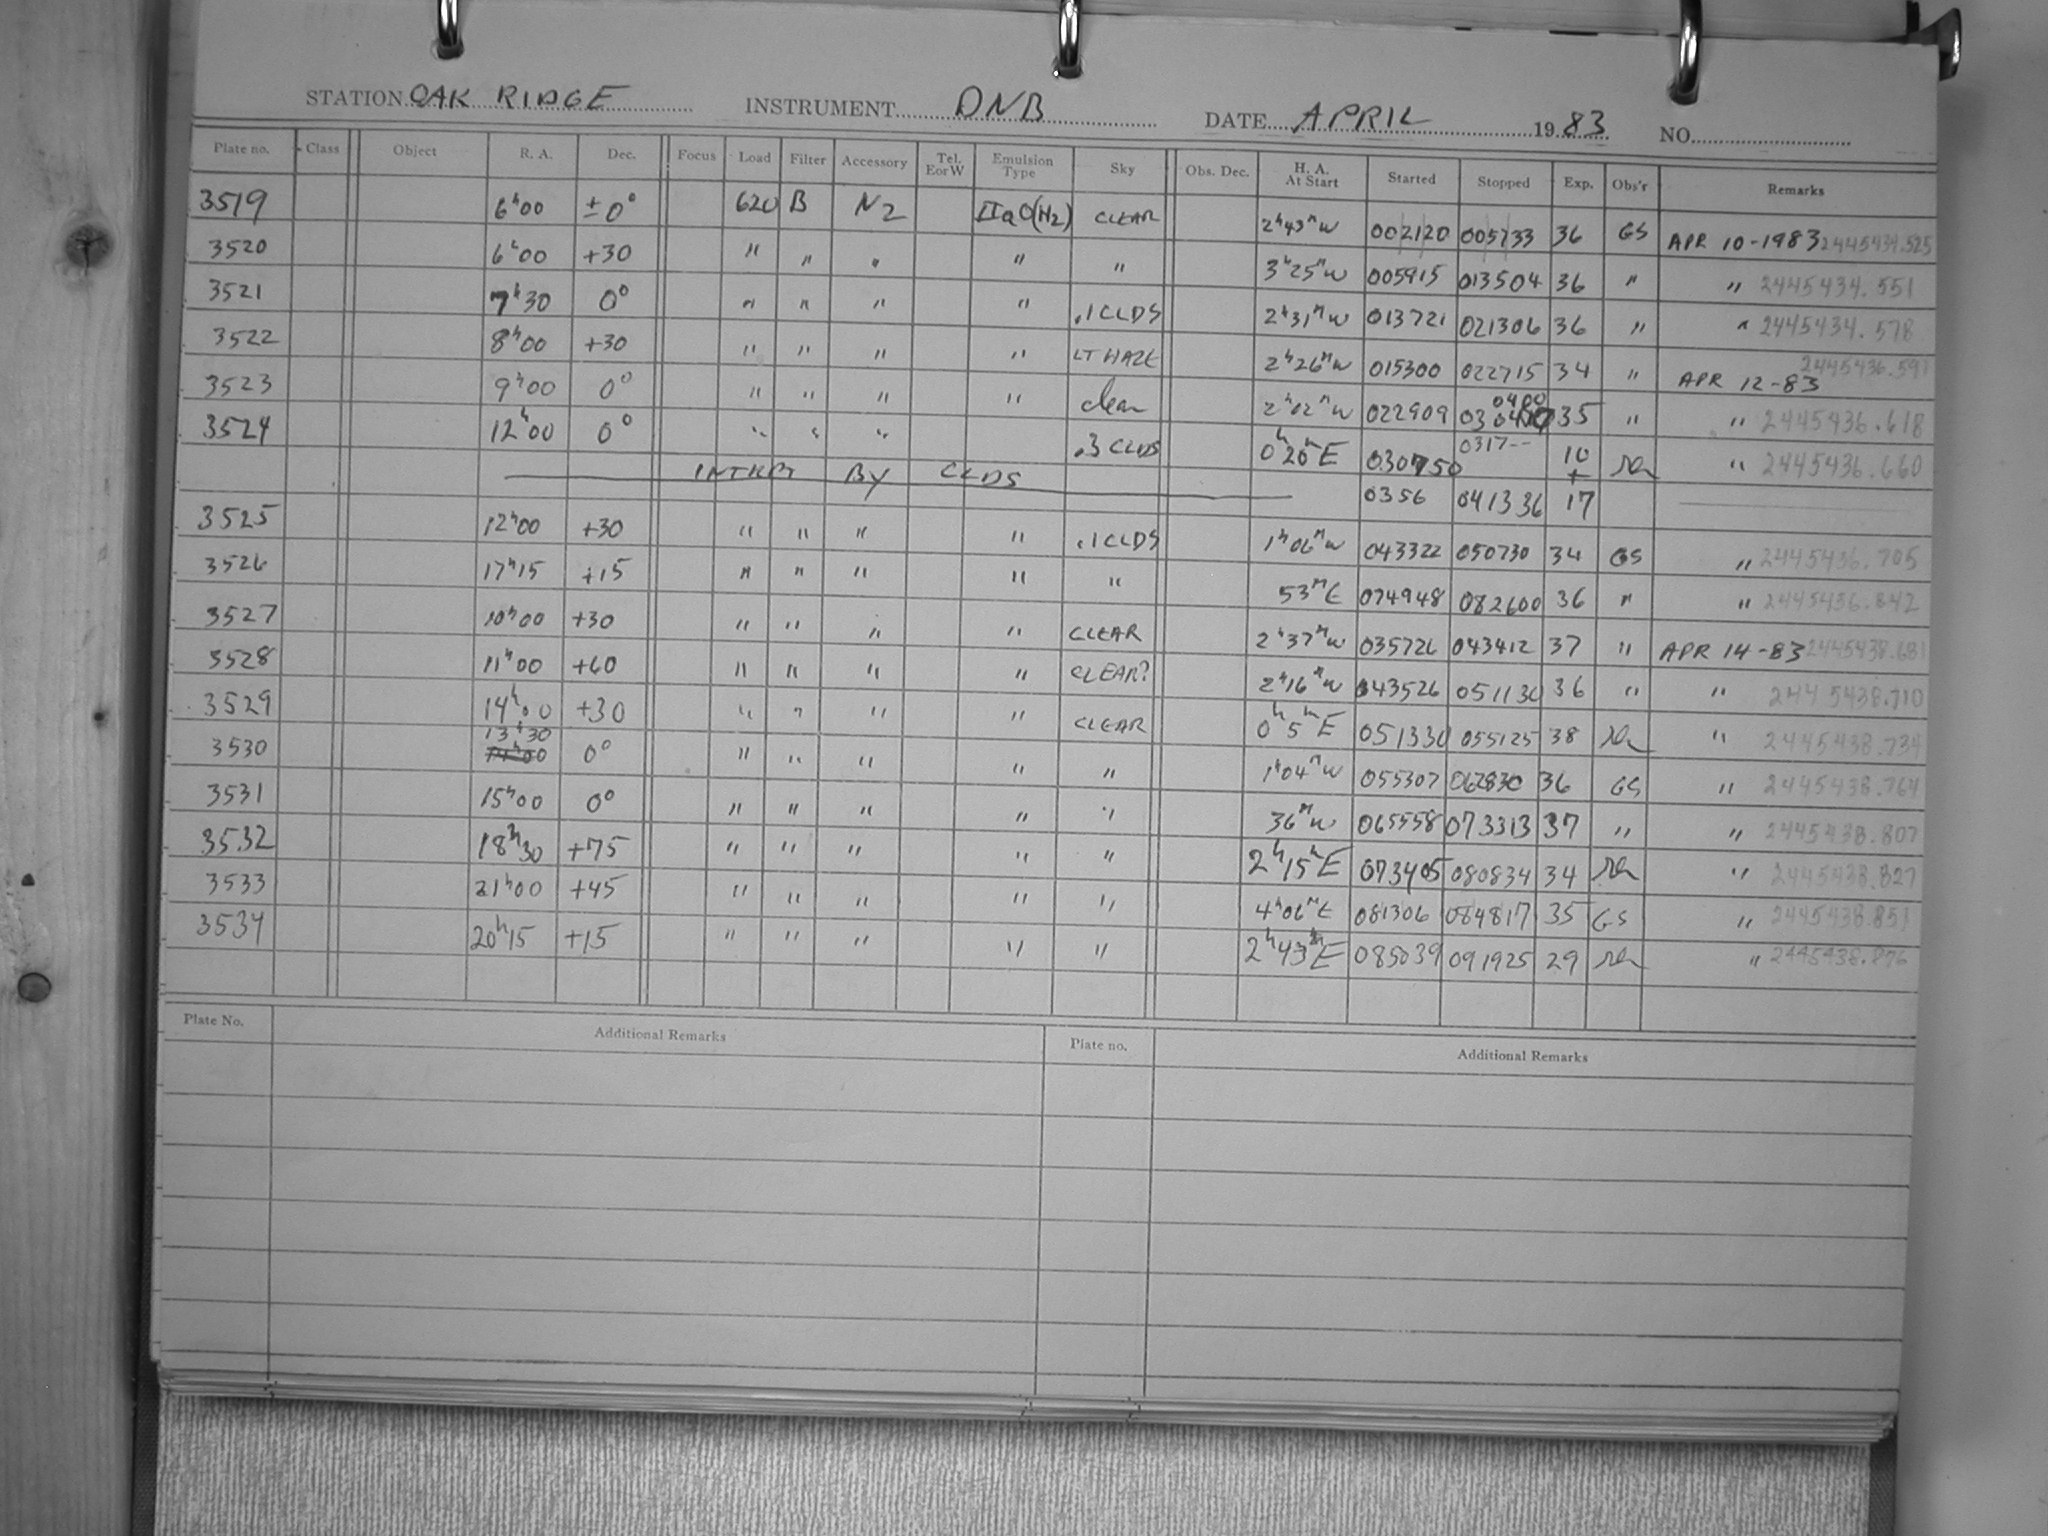 STATION OAK RIDGE INSTRUMENT DNB DATE APRIL 1983 NO.
Plate no. Class Object R. A. Dec. Focus Load Filter Accessory Tel. E or W Emulsion Type Sky Obs. Dec. H. A. At Start Started Stopped Exp. Obs'r Remarks
3519 6ʰ00 ±0° 620 B N2 IIaO(H2) CLEAR 2ʰ43ᵐW 002120 005733 36 GS APR 10-1983 2445434.525
3520 6ʰ00 +30 " " " " " 3ʰ25ᵐW 005915 013504 36 " " 2445434.551
3521 7ʰ30 0° " " " " .1 CLDS 2ʰ31ᵐW 013721 021306 36 " " 2445434.578
3522 8ʰ00 +30 " " " " LT HAZE 2ʰ26ᵐW 015300 022715 34 " APR 12-83 2445436.591
3523 9ʰ00 0° " " " " clear 2ʰ02ᵐW 022909 0304 0400 35 " " 2445436.618
3524 12ʰ00 0° " " " .3 CLDS 0ʰ20ᵐE 030750 0317-- 10 + " 2445436.660
INTRPT BY CLDS 0356 041336 17
3525 12ʰ00 +30 " " " " .1 CLDS 1ʰ06ᵐW 043322 050730 34 GS " 2445436.705
3526 17ʰ15 +15 " " " " " 53ᵐE 074948 082600 36 " " 2445436.842
3527 10ʰ00 +30 " " " " CLEAR 2ʰ37ᵐW 035726 043412 37 " APR 14-83 2445438.681
3528 11ʰ00 +60 " " " " CLEAR? 2ʰ16ᵐW 043526 051130 36 " " 2445438.710
3529 14ʰ00 +30 " " " " CLEAR 0ʰ5ᵐE 051330 055125 38 " 2445438.734
3530 13ʰ30 0° " " " " " 1ʰ04ᵐW 055307 062830 36 GS " 2445438.764
3531 15ʰ00 0° " " " " " 36ᵐW 065558 073313 37 " " 2445438.807
3532 18ʰ30 +75 " " " " " 2ʰ15ᵐE 073405 080834 34 " 2445438.827
3533 21ʰ00 +45 " " " " " 4ʰ06ᵐE 081306 084817 35 GS " 2445438.851
3534 20ʰ15 +15 " " " " " 2ʰ43ᵐE 085039 091925 29 " 2445438.876
Plate No. Additional Remarks Plate no. Additional Remarks